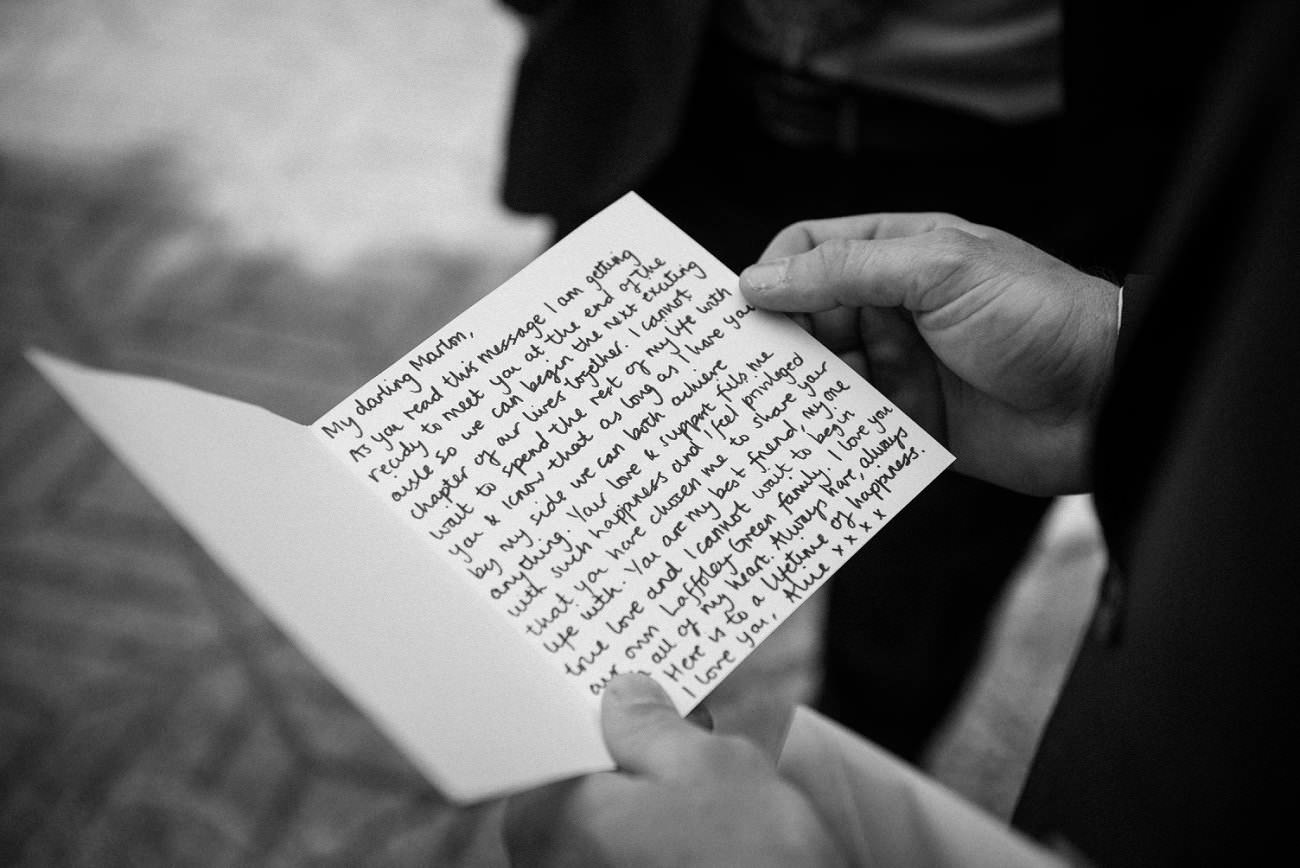 My darling Marlon,
As you read this message I am getting
ready to meet you at the end of the
aisle so we can begin the next exciting
chapter of our lives together. I cannot
wait to spend the rest of my life with
you & I know that as long as I have you
by my side we can both achieve
anything. Your love & support fills me
with such happiness and I feel privileged
that you have chosen me to share your
life with. You are my best friend, my one
true love and I cannot wait to begin
our own Laffoley Green family. I love you
all of my heart. Always have, always
Here is to a lifetime of happiness.
I love you, Alice x x x x